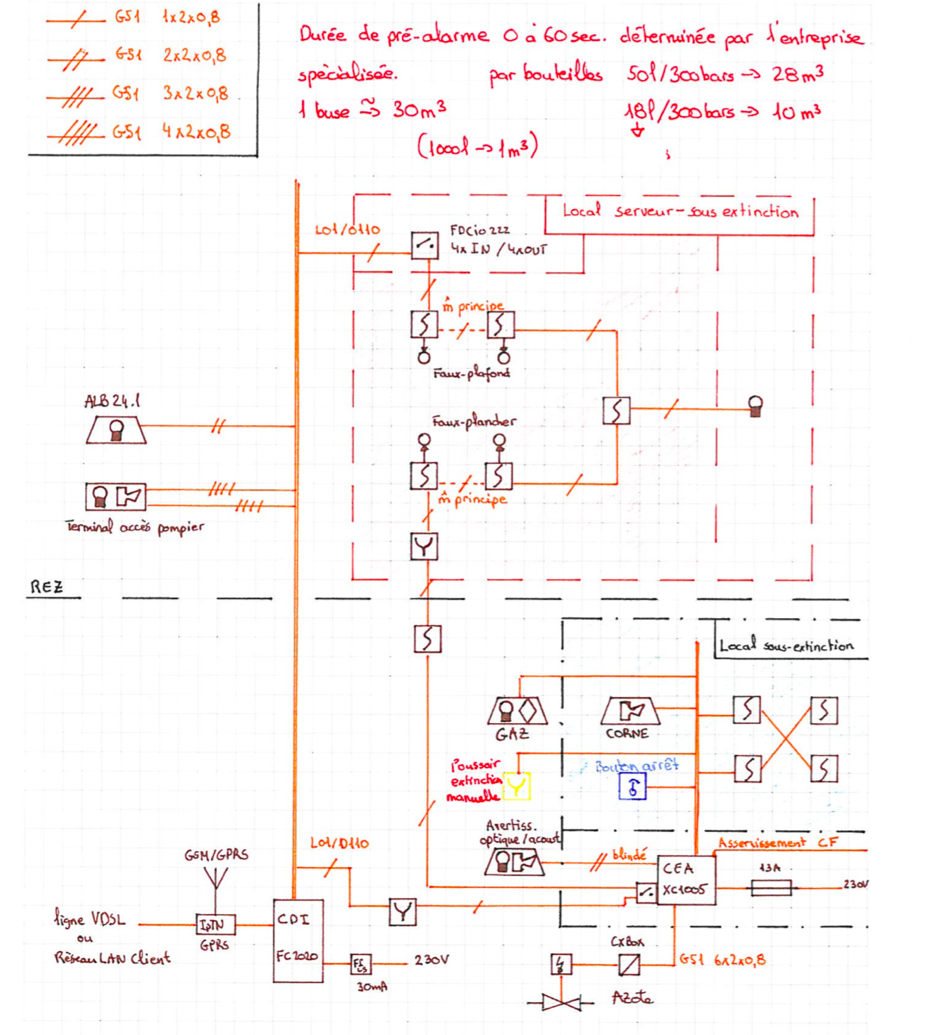 G51 1x2x0,8
G51 2x2x0,8
G51 3x2x0,8
G51 4x2x0,8
Durée de pré-alarme 0 à 60 sec. déterminée par l'entreprise
spècialisée. par bouteilles 50l/300bars → 28 m³
1 buse ≃> 30m³ 18l/300bars → 10 m³
(1000l → 1m³)
Local serveur-sous extinction
L01/0110
FDCio 222
4x IN / 4xOUT
m̂ principe
Faux-plafond
ALB 24.1
Faux-plancher
m̂ principe
Terminal accès pompier
REZ
Local sous-extinction
GAZ
CORNE
Poussoir
extinction
manuelle
Bouton arrêt
Avertiss.
optique/acoust
blindé
Asservissement CF
L01/D110
GSM/GPRS
CEA
XC1005
13A
230V
ligne VDSL
ou
Réseau LAN Client
GPRS
CDI
FC2020
230V
30mA
CxBox
G51 6x2x0,8
Azote